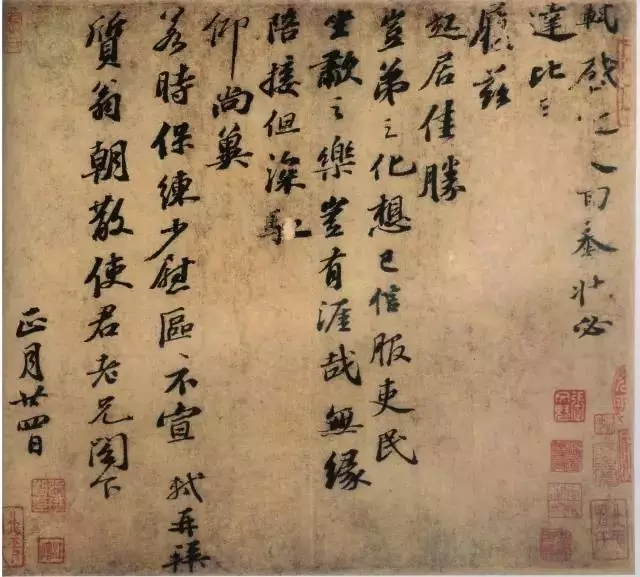 軾啓近人回奉狀必
達比
履茲
起居佳勝
豈弟之化想已信服吏民
坐歗之樂豈有涯哉無緣
陪接但深馳
仰尚冀
若時保練少慰區〻不宣 軾再拜
質翁朝散使君老兄閣下
正月廿四日